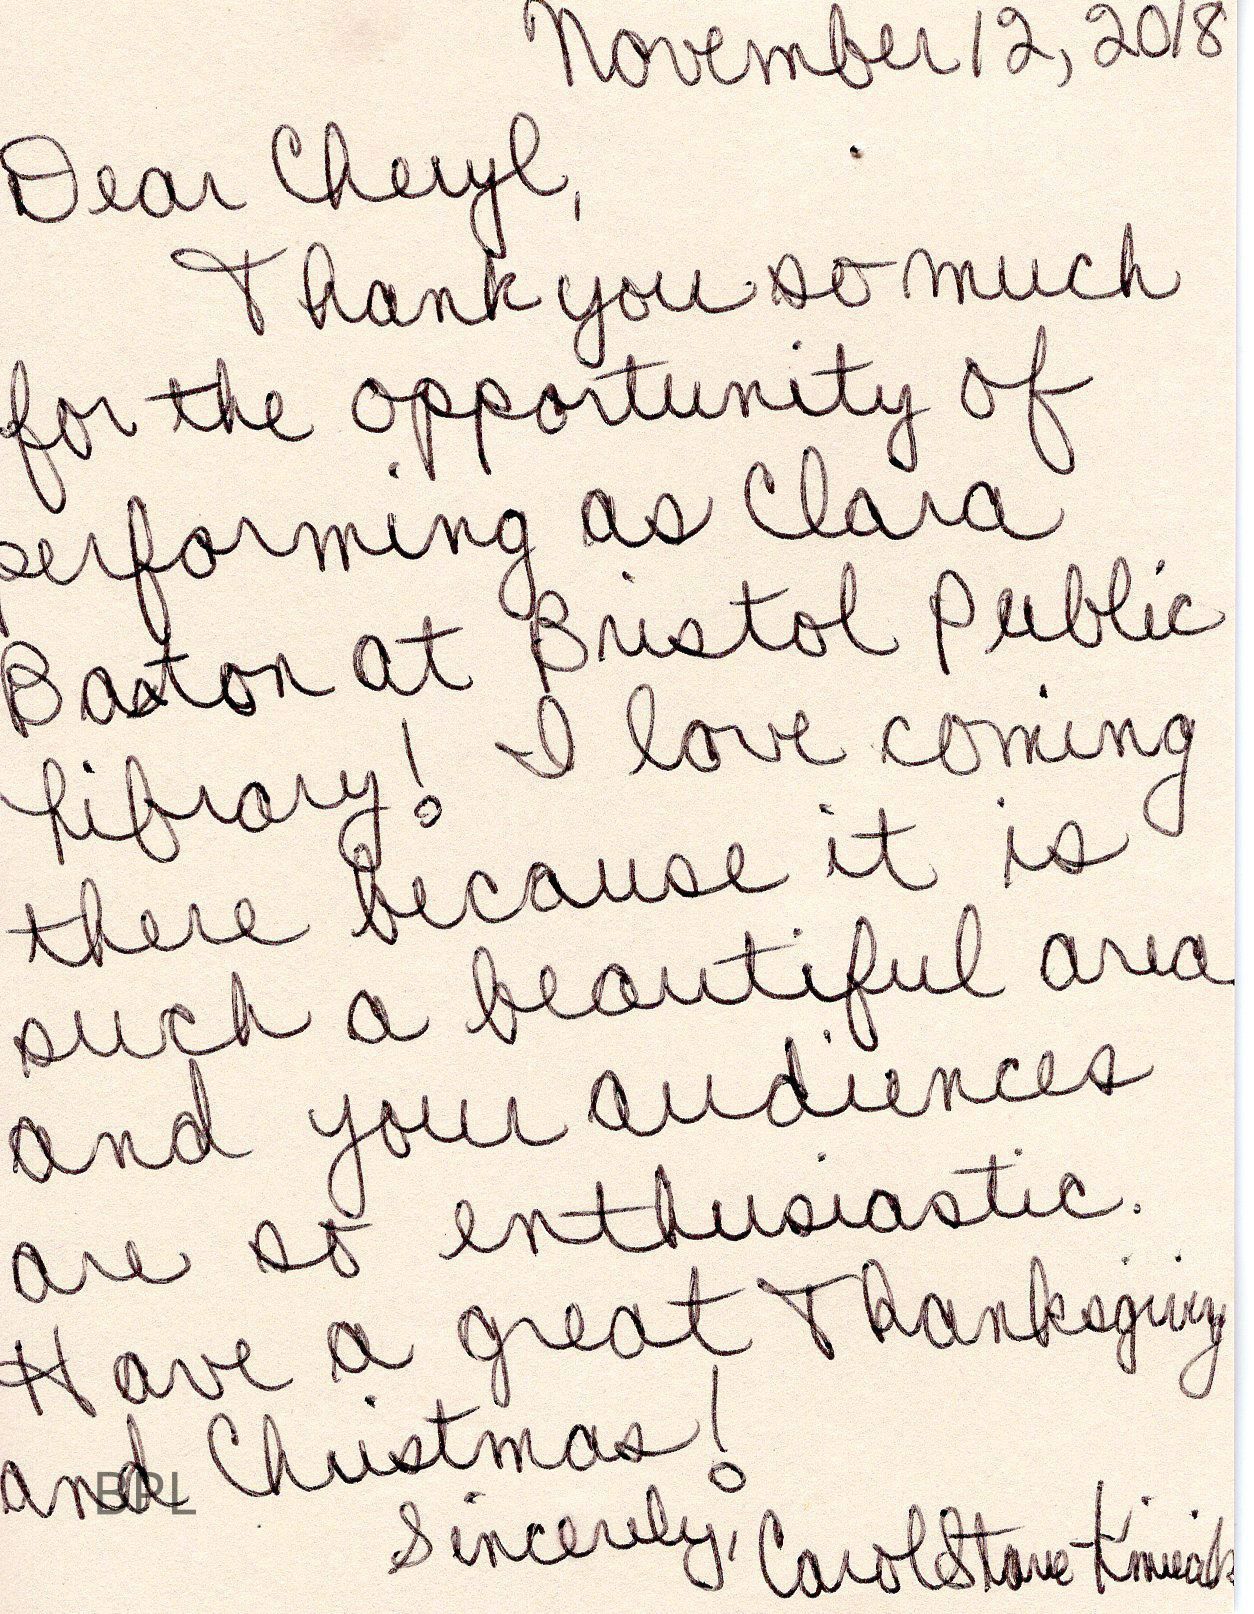 November 12, 2018
Dear Cheryl,
Thank you so much
for the opportunity of
performing as Clara
Barton at Bristol Public
Library! I love coming
there because it is
such a beautiful area
and your audiences
are so enthusiastic.
Have a great Thanksgiving
and Christmas!
BPL
Sincerely, Carol Starre